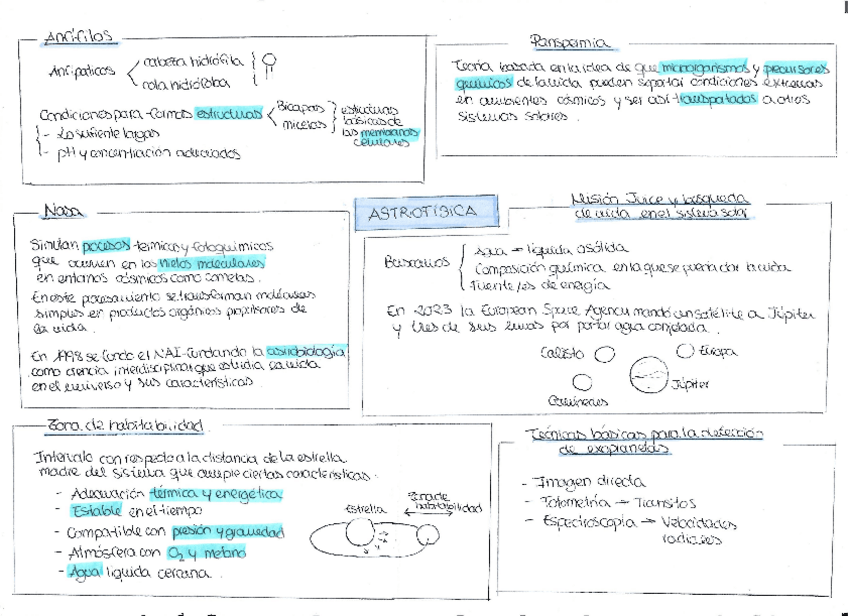 Anfifilos
Anfipaticos
cabeza hidrófila
cola hidrófoba
Condiciones para formas estructuras
Bicapas
micelas
estructuras
básicas de
las membranas
celulares
- Lo sufiente largas
- pH y concentración adecuados
Panspermia
Teoría basada en la idea de que microrganismos y precursores
químicos de la vida pueden soportar condiciones extremas
en ambientes cósmicos y ser así transportados a otros
sistemas solares.
Nasa
Simulan procesos térmicos y fotoquímicos
que ocurren en los hielos moleculares
en entornos cósmicos como cometas.
En este procesamiento se transforman moléculas
simples en productos orgánicos propulsores de
la vida.
En 1998 se fundo el NAI fundando la astrobiología
como ciencia interdisciplinar que estudia la vida
en el universo y sus características.
ASTROFÍSICA
Misión Juice y búsqueda
de vida en el sistema solar
Buscamos
Agua → líquida o sólida
Composición química en la que se pueda dar la vida
Fuente/es de energía
En 2023 la European Space Agency mandó un satélite a Júpiter
y tres de sus lunas por portar agua congelada.
Calisto
Europa
Júpiter
Ganímedes
Zona de habitabilidad
Intervalo con respecto a la distancia de la estrella
madre del sistema que cumple ciertas características:
- Adecuación térmica y energética
- Estable en el tiempo
- Compatible con presión y gravedad
- Atmósfera con O₂ y metano
- Agua líquida cercana.
Estrella
Zona de
habitabilidad
Técnicas básicas para la detección
de exoplanetas
- Imagen directa
- Fotometría → Tránsitos
- Espectroscopía → Velocidades
radiales